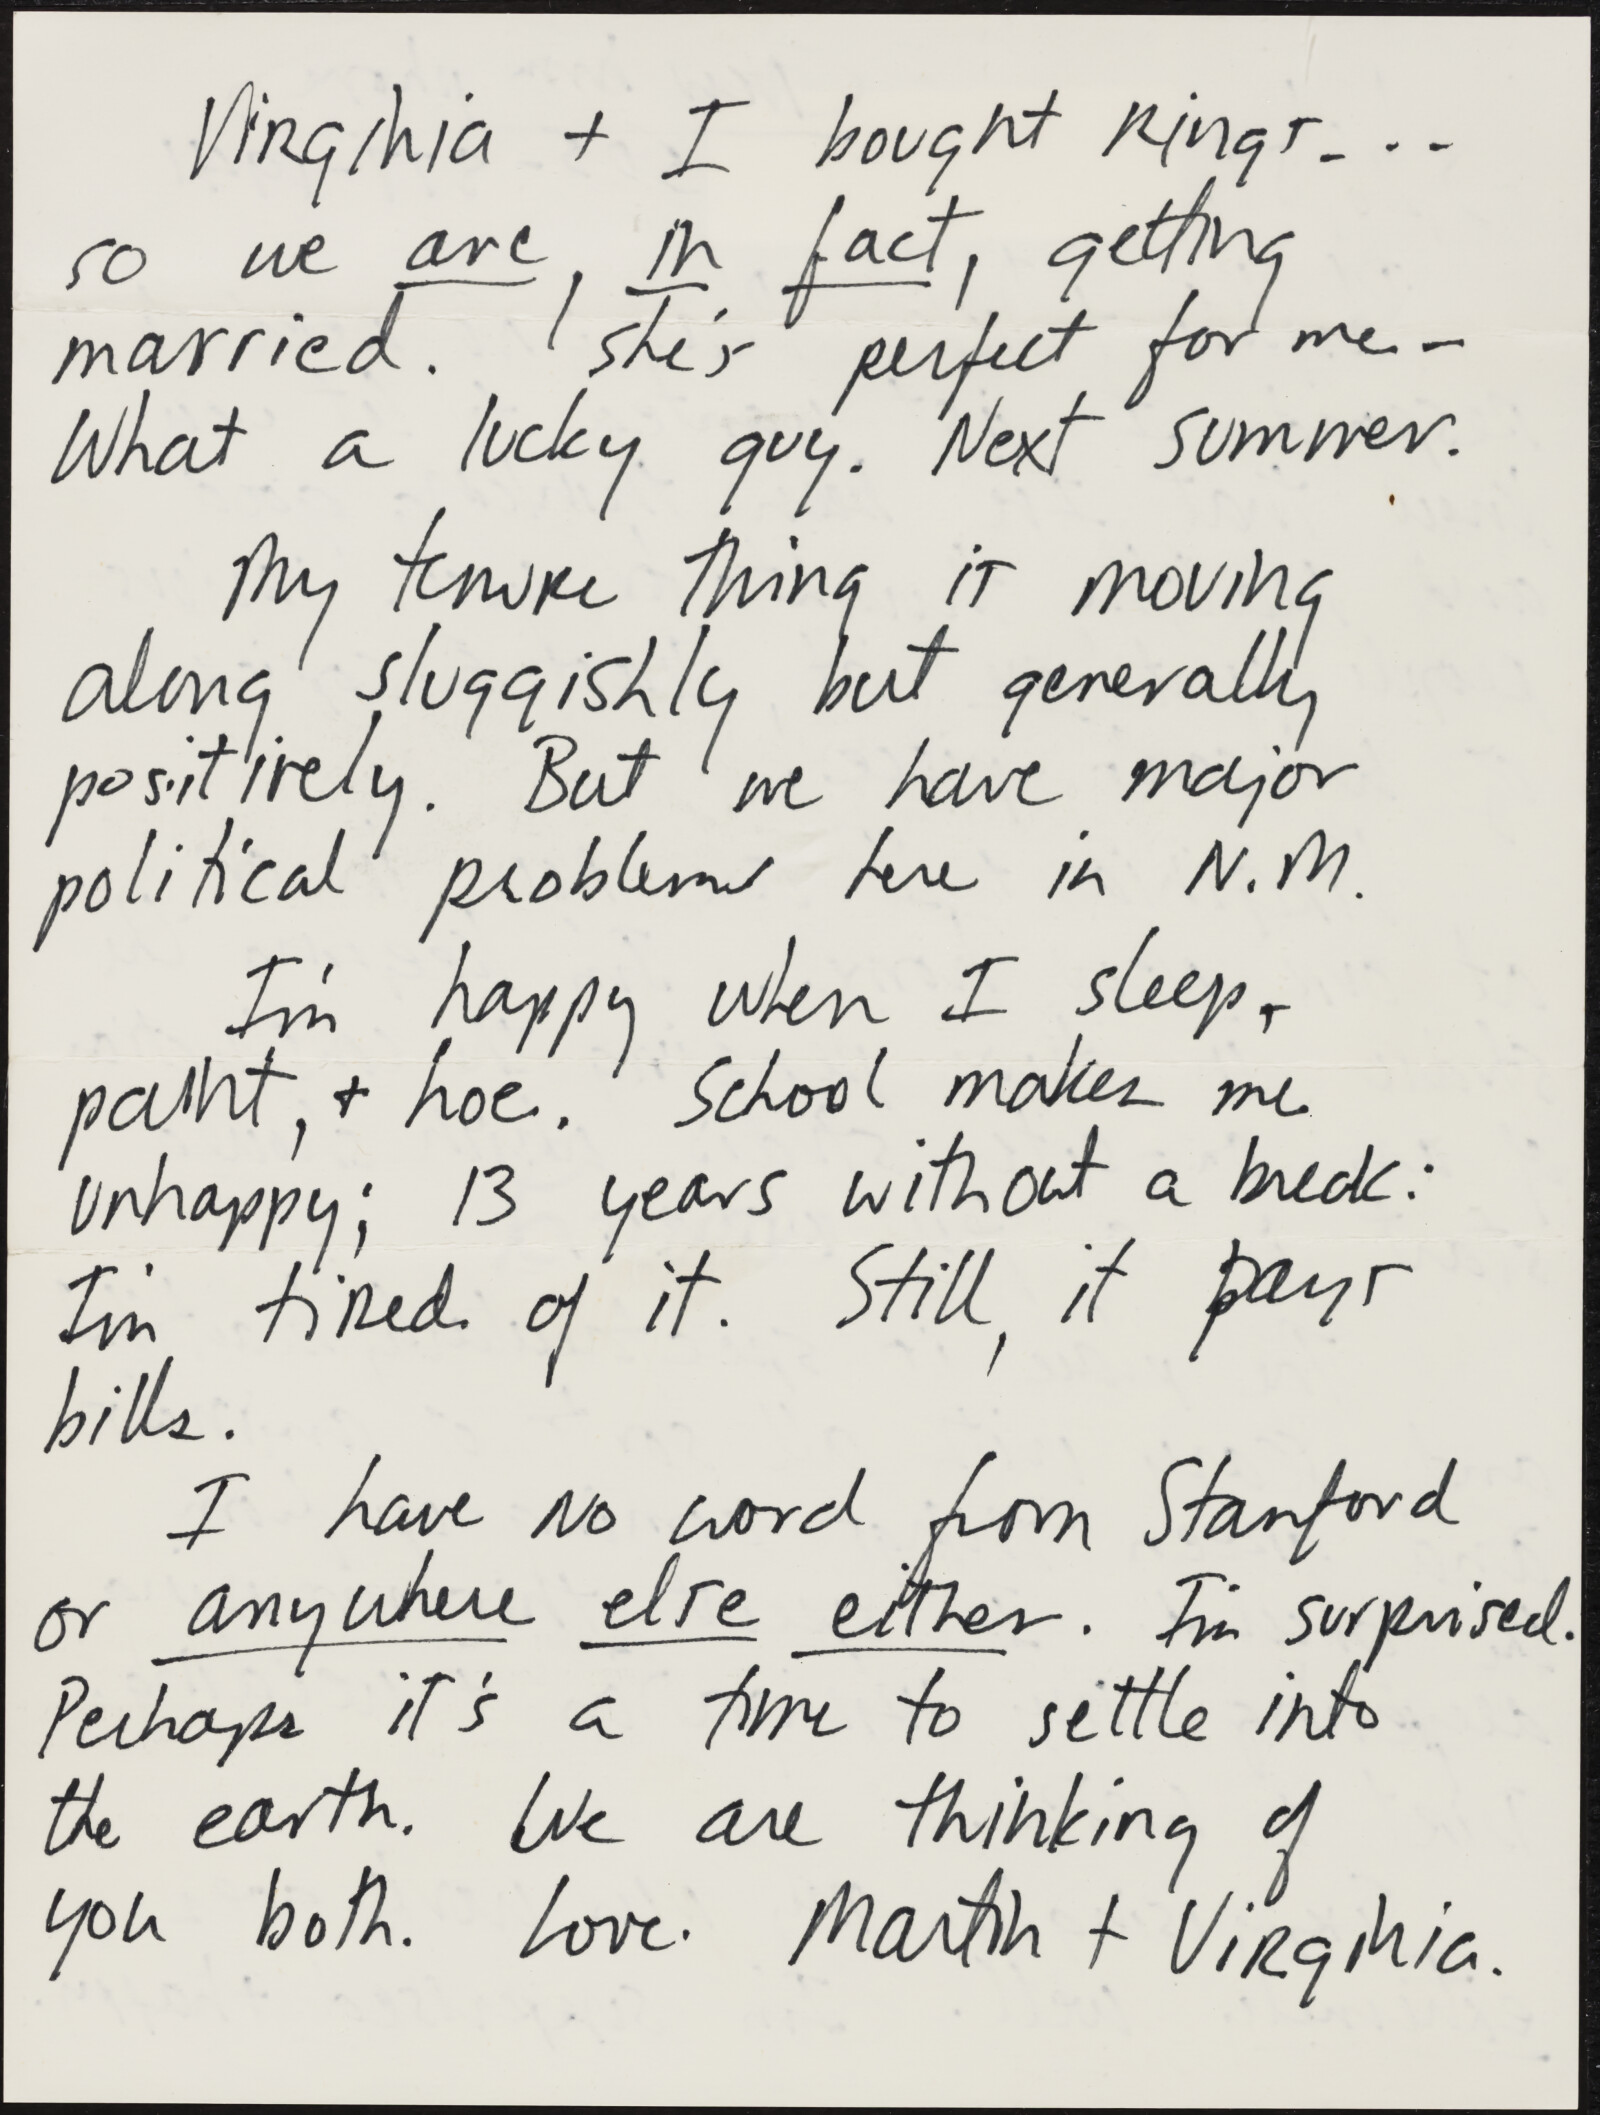 Virginia + I bought rings...
so we are, in fact, getting
married. She's perfect for me -
What a lucky guy. Next summer.
My tenure thing is moving
along sluggishly but generally
positively. But we have major
political problems here in N.M.
I'm happy when I sleep,
paint, + hoe. School makes me
unhappy; 13 years without a break:
I'm tired of it. Still, it pays
bills.
I have no word from Stanford
or anywhere else either. I'm surprised.
Perhaps it's a time to settle into
the earth. We are thinking of
you both. Love. Martin + Virginia.